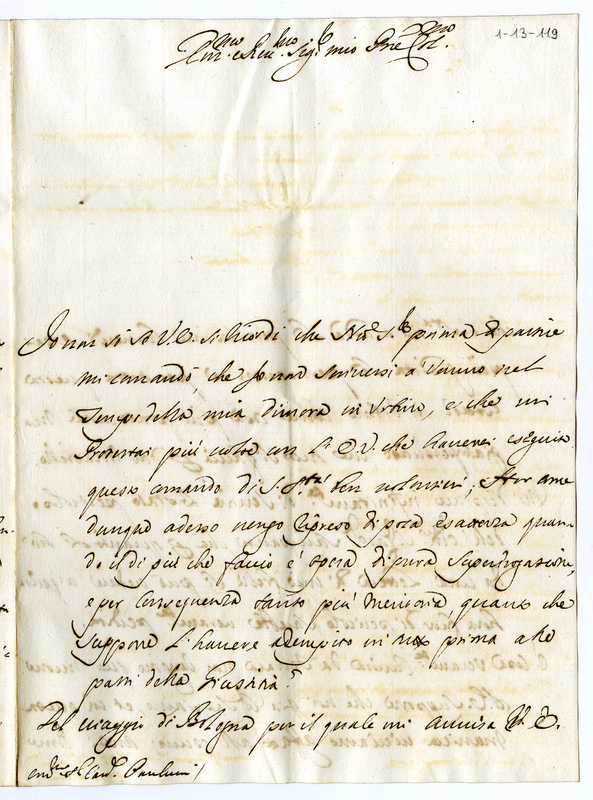 1-13-119
Em.mo e Rev.mo Sig.r mio P͞ne Col.mo
Io non sò se V. E. si ricordi che N.ro S.re prima di partire
mi comandò, che Io non scrivessi a veruno nel
tempo della mia dimora in Urbino, e che mi
protestai più volte con l'E. V. che haverei eseguito
questo comando di S. S.tà ben volentieri; Hor come
dunque adesso vengo ripreso di poca esattezza quan-
do il di più che faccio è opera di pura supererogazione,
e per conseguenza tanto più meritoria, quanto che
suppone l'havere adempito in prima a le
parti della Giustizia?
Del viaggio di Bologna per il quale mi avvisa V. E.
Sig.r Card. Paulucci